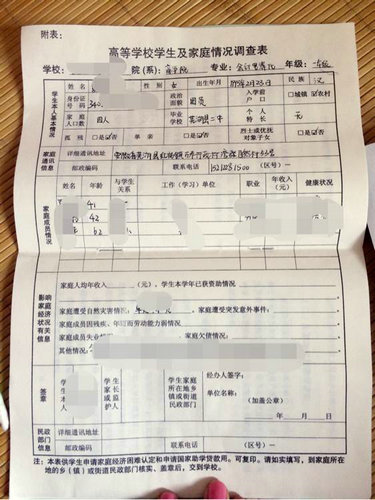 附表：
高等学校学生及家庭情况调查表
学校： 院（系）：商学院 专业：会计电算化 年级：一年级
学生本人基本情况
姓名 性别 女 出生年月 2月23日 民族 汉
身份证号码 340 政治面貌 团员 入学前户口 □城镇 ☑农村
家庭人口数 四人 毕业学校 芜湖县二中 个人特长 无
孤残 □是☑否 单亲 □是☑否 烈士或优抚对象子女 □是☑否
家庭通讯信息
详细通讯地址
邮政编码 联系电话 （区号）—
家庭成员情况
姓名 年龄 与学生关系 工作（学习）单位 职业 年收入（元） 健康状况
41
42
62
影响家庭经济状况有关信息
家庭人均年收入 （元），学生本学年已获资助情况
家庭遭受自然灾害情况： 。家庭遭受突发意外事件：
家庭成员因残疾、年迈而劳动能力弱情况
家庭成员失业情 家庭欠债情况：
其他情况：
签章
学生本人
学生家长或监护人
学生家庭所在地乡镇或街道民政部门
经办人签字：
单位名称：
（加盖公章）
年 月 日
民政部门信息
详细通讯地址
邮政编码 联系电话 （区号）—
注：本表供学生申请家庭经济困难认定和申请国家助学贷款用。可复印。请如实填写，到家庭所在
地的乡（镇）或街道民政部门核实、盖章后，交到学校。